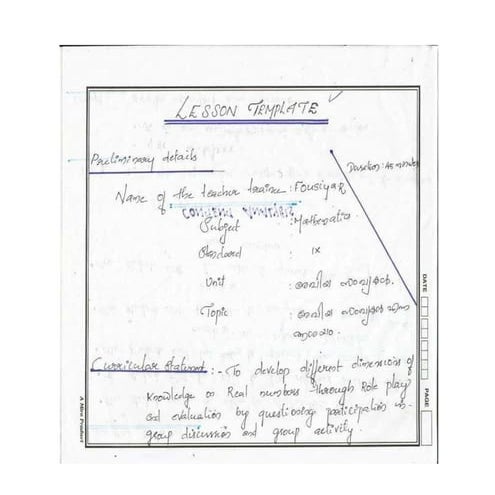 LESSON TEMPLATE
Preliminary details
Duration: 45 minutes
Name of the teacher trainee : Fousiya R
Subject : Mathematics
Standard : IX
Unit : രേഖീയ സംഖ്യകൾ
Topic : രേഖീയ സംഖ്യകൾ എന്ന
ആശയം.
Curricular Statement :- To develop different dimensions of
Knowledge on Real numbers through Role play
and evaluation by questioning participation in
group discussion and group activity.
DATE
PAGE
A Mira Product